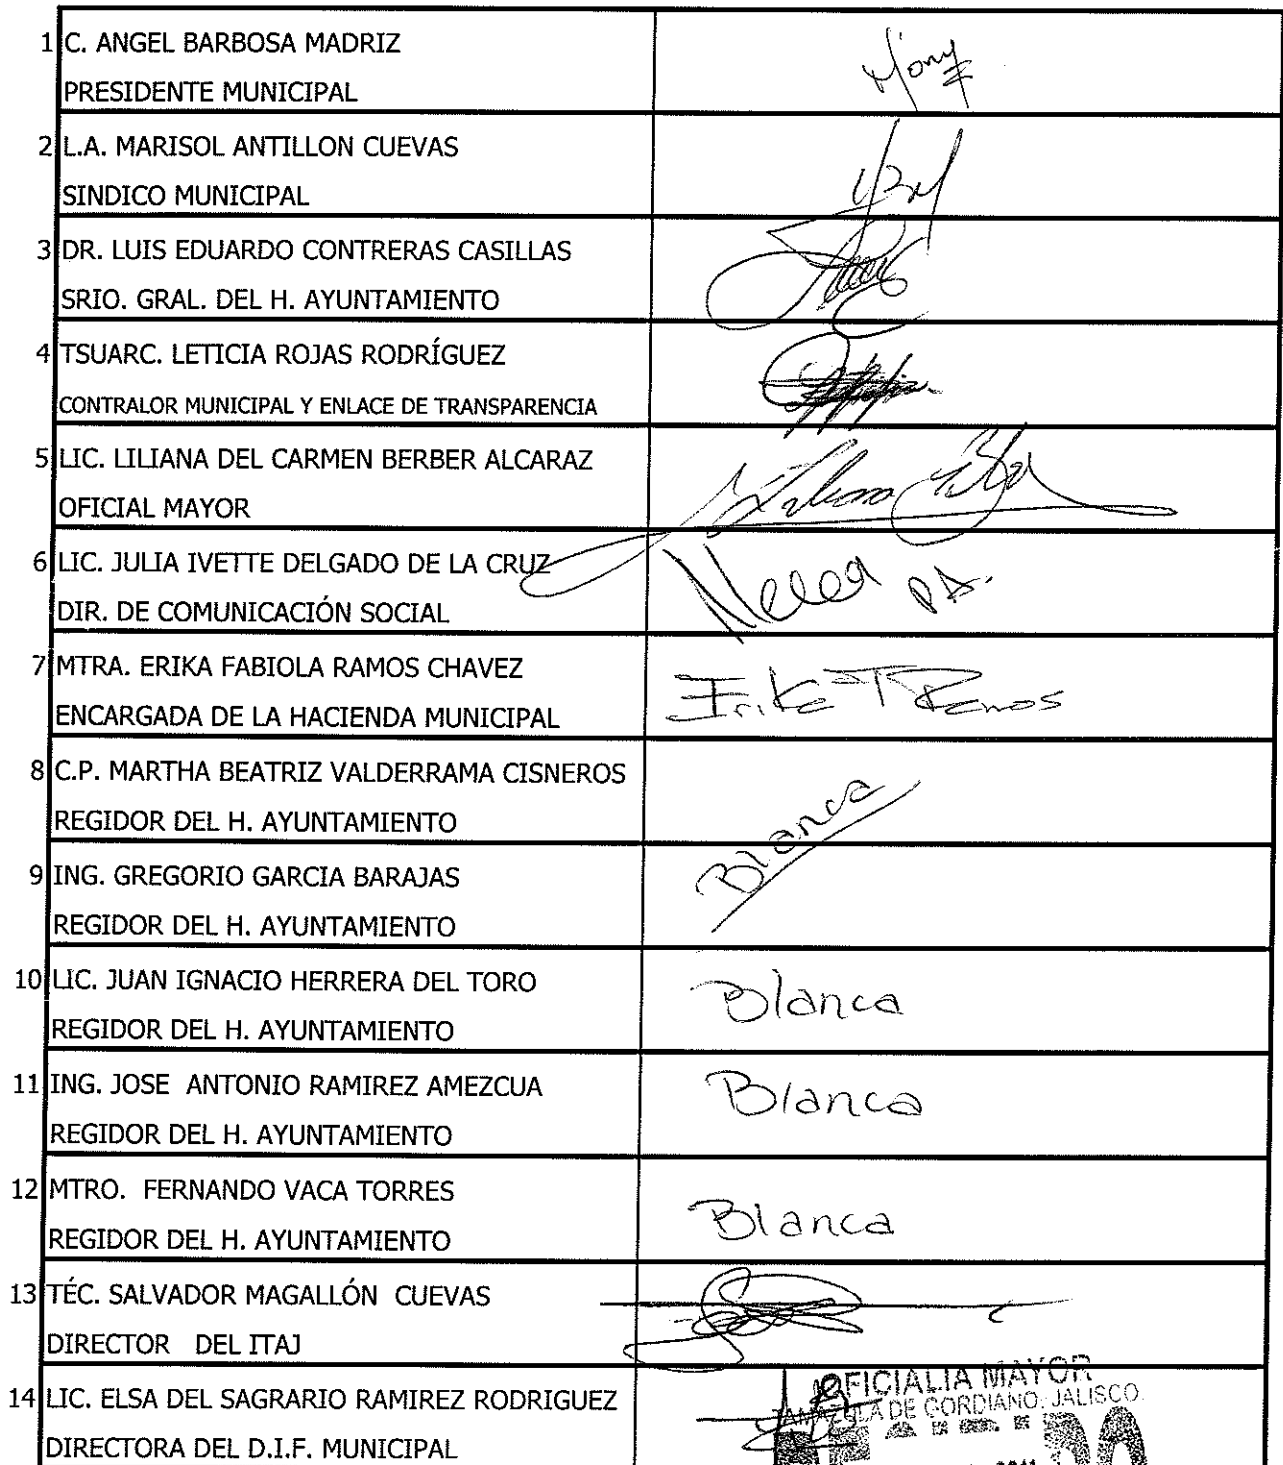 1 C. ANGEL BARBOSA MADRIZ
PRESIDENTE MUNICIPAL
Mony
2 L.A. MARISOL ANTILLON CUEVAS
SINDICO MUNICIPAL
3 DR. LUIS EDUARDO CONTRERAS CASILLAS
SRIO. GRAL. DEL H. AYUNTAMIENTO
4 TSUARC. LETICIA ROJAS RODRÍGUEZ
CONTRALOR MUNICIPAL Y ENLACE DE TRANSPARENCIA
5 LIC. LILIANA DEL CARMEN BERBER ALCARAZ
OFICIAL MAYOR
6 LIC. JULIA IVETTE DELGADO DE LA CRUZ
DIR. DE COMUNICACIÓN SOCIAL
7 MTRA. ERIKA FABIOLA RAMOS CHAVEZ
ENCARGADA DE LA HACIENDA MUNICIPAL
Erika F Ramos
8 C.P. MARTHA BEATRIZ VALDERRAMA CISNEROS
REGIDOR DEL H. AYUNTAMIENTO
Blanca
9 ING. GREGORIO GARCIA BARAJAS
REGIDOR DEL H. AYUNTAMIENTO
10 LIC. JUAN IGNACIO HERRERA DEL TORO
REGIDOR DEL H. AYUNTAMIENTO
Blanca
11 ING. JOSE ANTONIO RAMIREZ AMEZCUA
REGIDOR DEL H. AYUNTAMIENTO
Blanca
12 MTRO. FERNANDO VACA TORRES
REGIDOR DEL H. AYUNTAMIENTO
Blanca
13 TÉC. SALVADOR MAGALLÓN CUEVAS
DIRECTOR DEL ITAJ
14 LIC. ELSA DEL SAGRARIO RAMIREZ RODRIGUEZ
DIRECTORA DEL D.I.F. MUNICIPAL
OFICIALIA MAYOR
TAMAZULA DE GORDIANO, JALISCO.